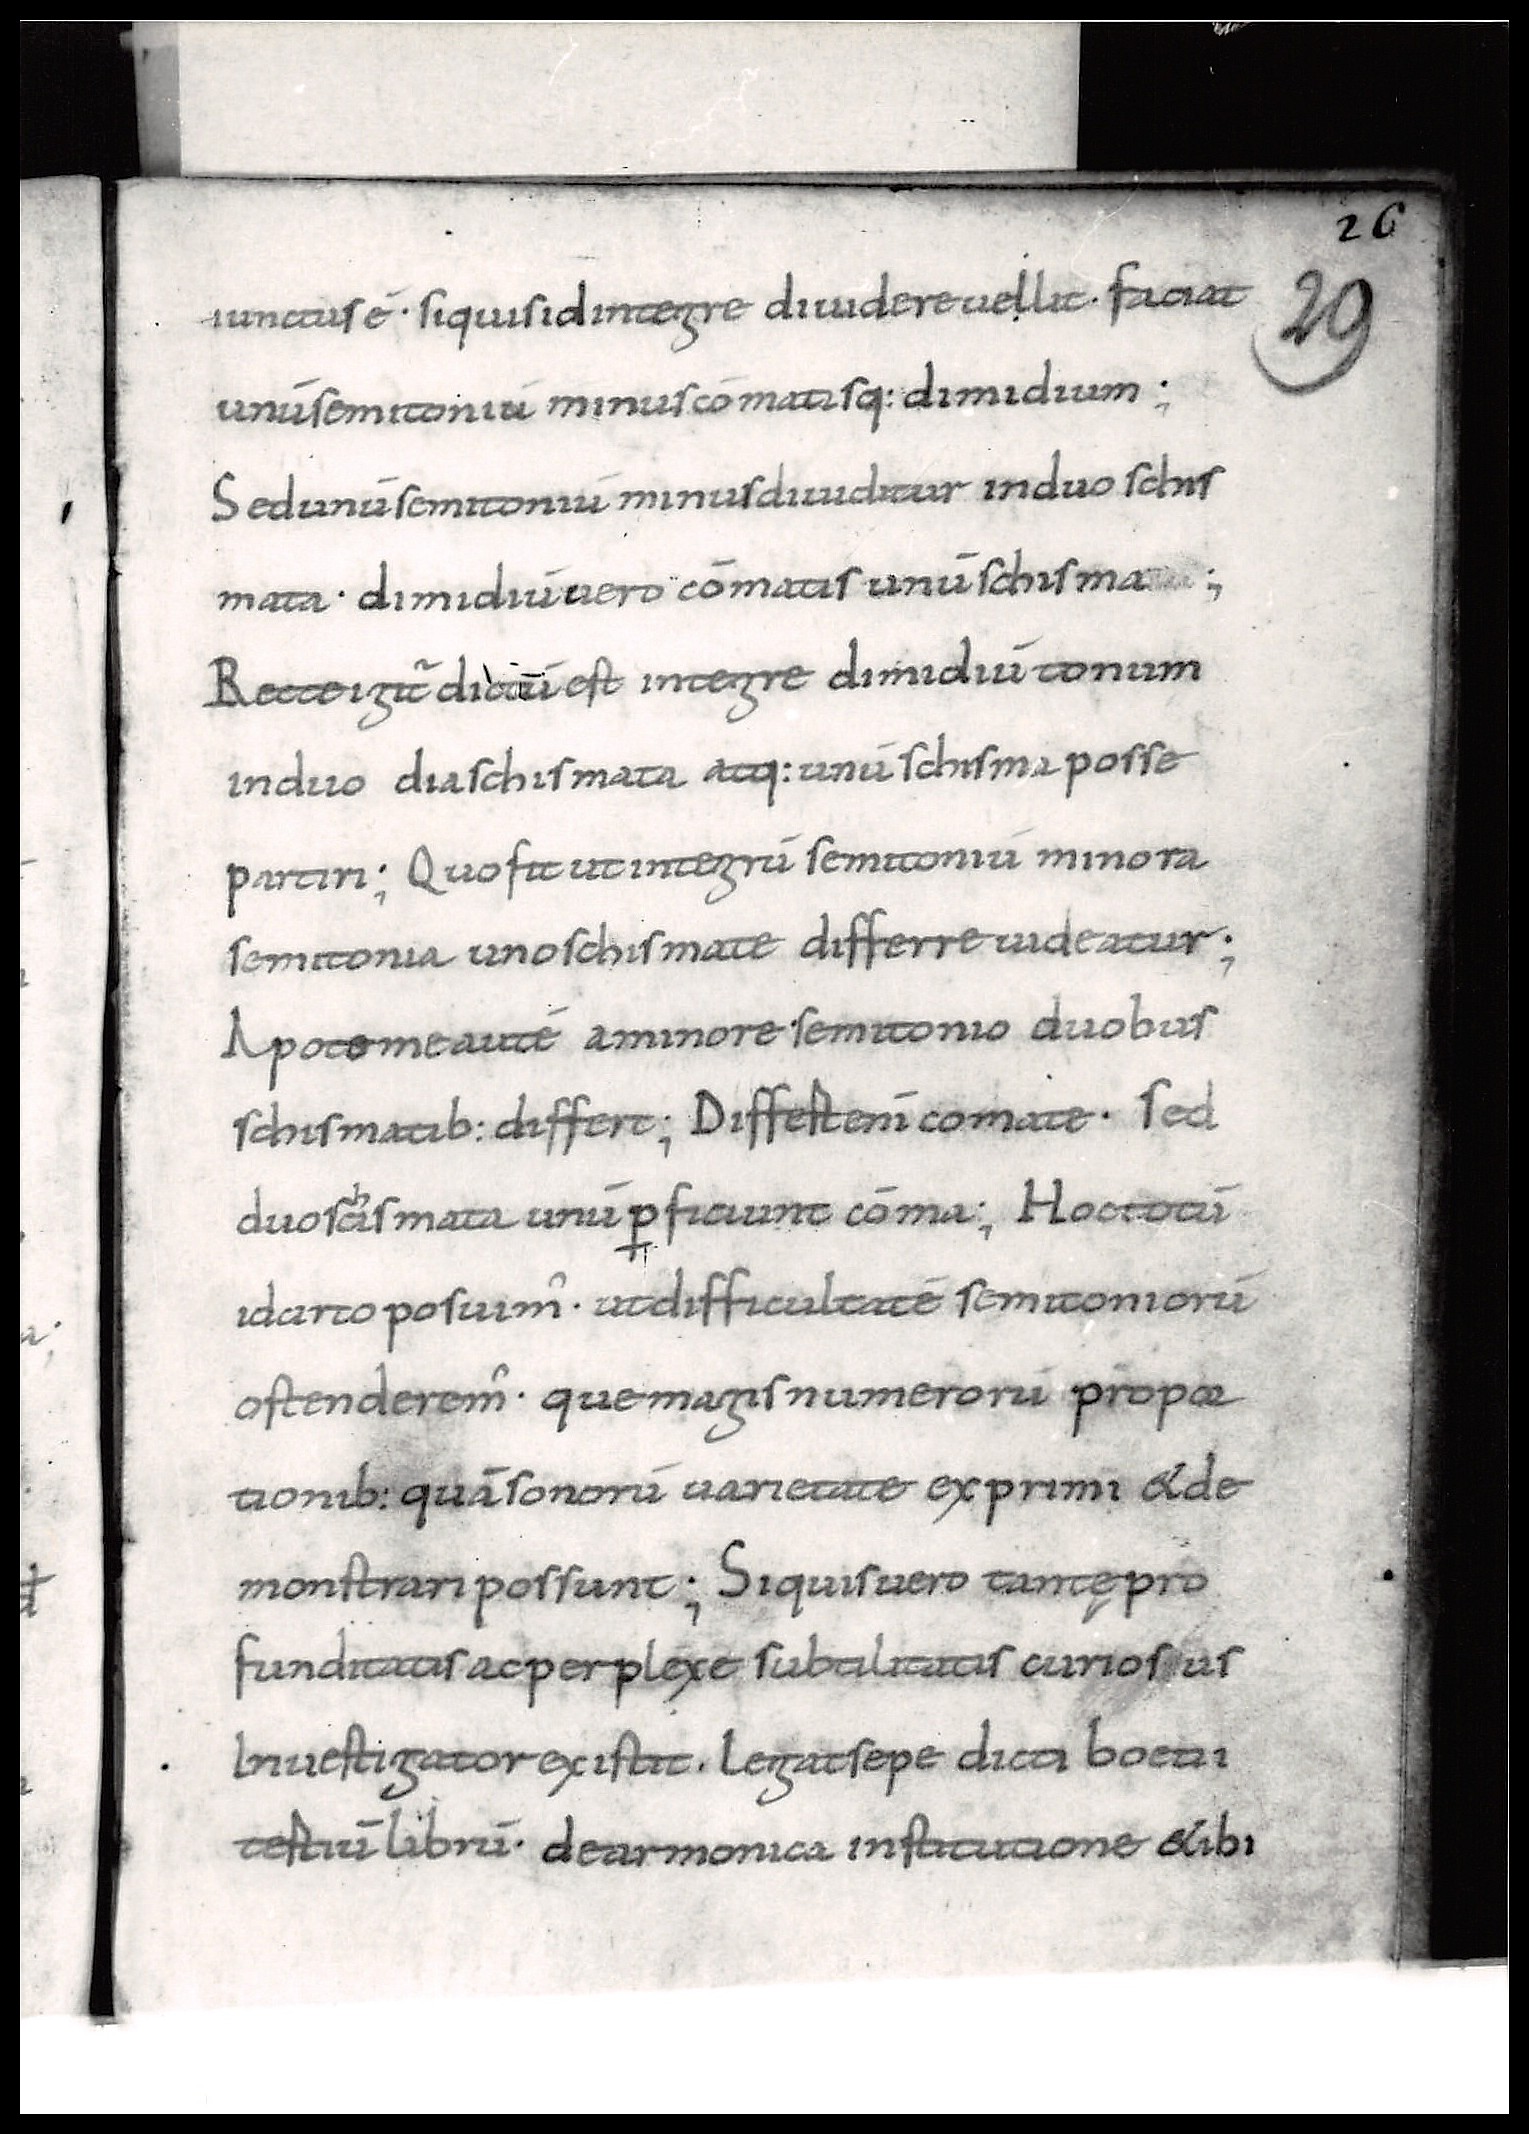 26
29
iunctus ē· siquis id integre diuidere uellit· faciat
unū semitoniū minus cōmatisq: dimidium;
Sed unū semitoniū minus diuiditur in duo schis
mata· dimidiū uero cōmatis unū schisma;
Recte igit̃ dictū est integre dimidiū tonum
in duo diaschismata atq: unū schisma posse
partiri; Quo fit ut integrū semitoniū minora
semitonia uno schismate differre uideatur;
Apotome autē a minore semitonio duobus
schismatib: differt; Differt enī comate· sed
duo schismata unū ꝑficiunt cōma; Hoc totū
idcirco posuim᾽· ut difficultatē semitoniorū
ostenderem᾽· que magis numerorū propor
tionib: quā sonorū uarietate exprimi & de
monstrari possunt; Siquis uero tantę pro
funditatis ac perplexe subtilitatis curiosus
Inuestigator existit· legat sepe dicti boetii
testiū librū· de armonica institutione & ibi